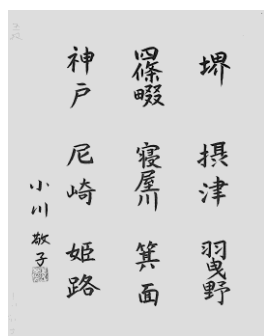 堺 摂津 羽曳野
四條畷 寝屋川 箕面
神戸 尼崎 姫路
小川 敬子